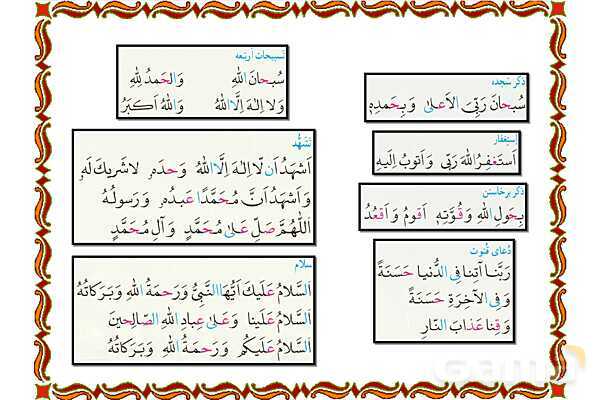 ذکر سجده
سُبحانَ رَبِّیَ الاَعلیٰ وَ بِحَمدِهِ
اِستغفار
اَستَغفِرُ اللهَ رَبّی وَ اَتوبُ اِلَیهِ
ذکر برخاستن
بِحَولِ اللهِ وَ قُوَّتِهِ اَقومُ وَ اَقعُدُ
دُعای قُنوت
رَبَّنا آتِنا فِی الدُّنیا حَسَنَةً
وَ فِی الآخِرَةِ حَسَنَةً
وَ قِنا عَذابَ النّار
تسبیحات اربعه
سُبحانَ اللهِ وَالحَمدُ لِلّهِ
وَ لا اِلٰهَ اِلَّا اللهُ وَاللهُ اَکبَرُ
تَشَهُّد
اَشهَدُ اَن لّا اِلٰهَ اِلَّا اللهُ وَحدَهُ لا شَریكَ لَهُ
وَ اَشهَدُ اَنَّ مُحَمَّدًا عَبدُهُ وَ رَسولُهُ
اَللّهُمَّ صَلِّ عَلیٰ مُحَمَّدٍ وَ آلِ مُحَمَّدٍ
سلام
اَلسَّلامُ عَلَیكَ اَیُّهَا النَّبِیُّ وَ رَحمَةُ اللهِ وَ بَرَکاتُهُ
اَلسَّلامُ عَلَینا وَ عَلیٰ عِبادِ اللهِ الصّالِحینَ
اَلسَّلامُ عَلَیکُم وَ رَحمَةُ اللهِ وَ بَرَکاتُهُ